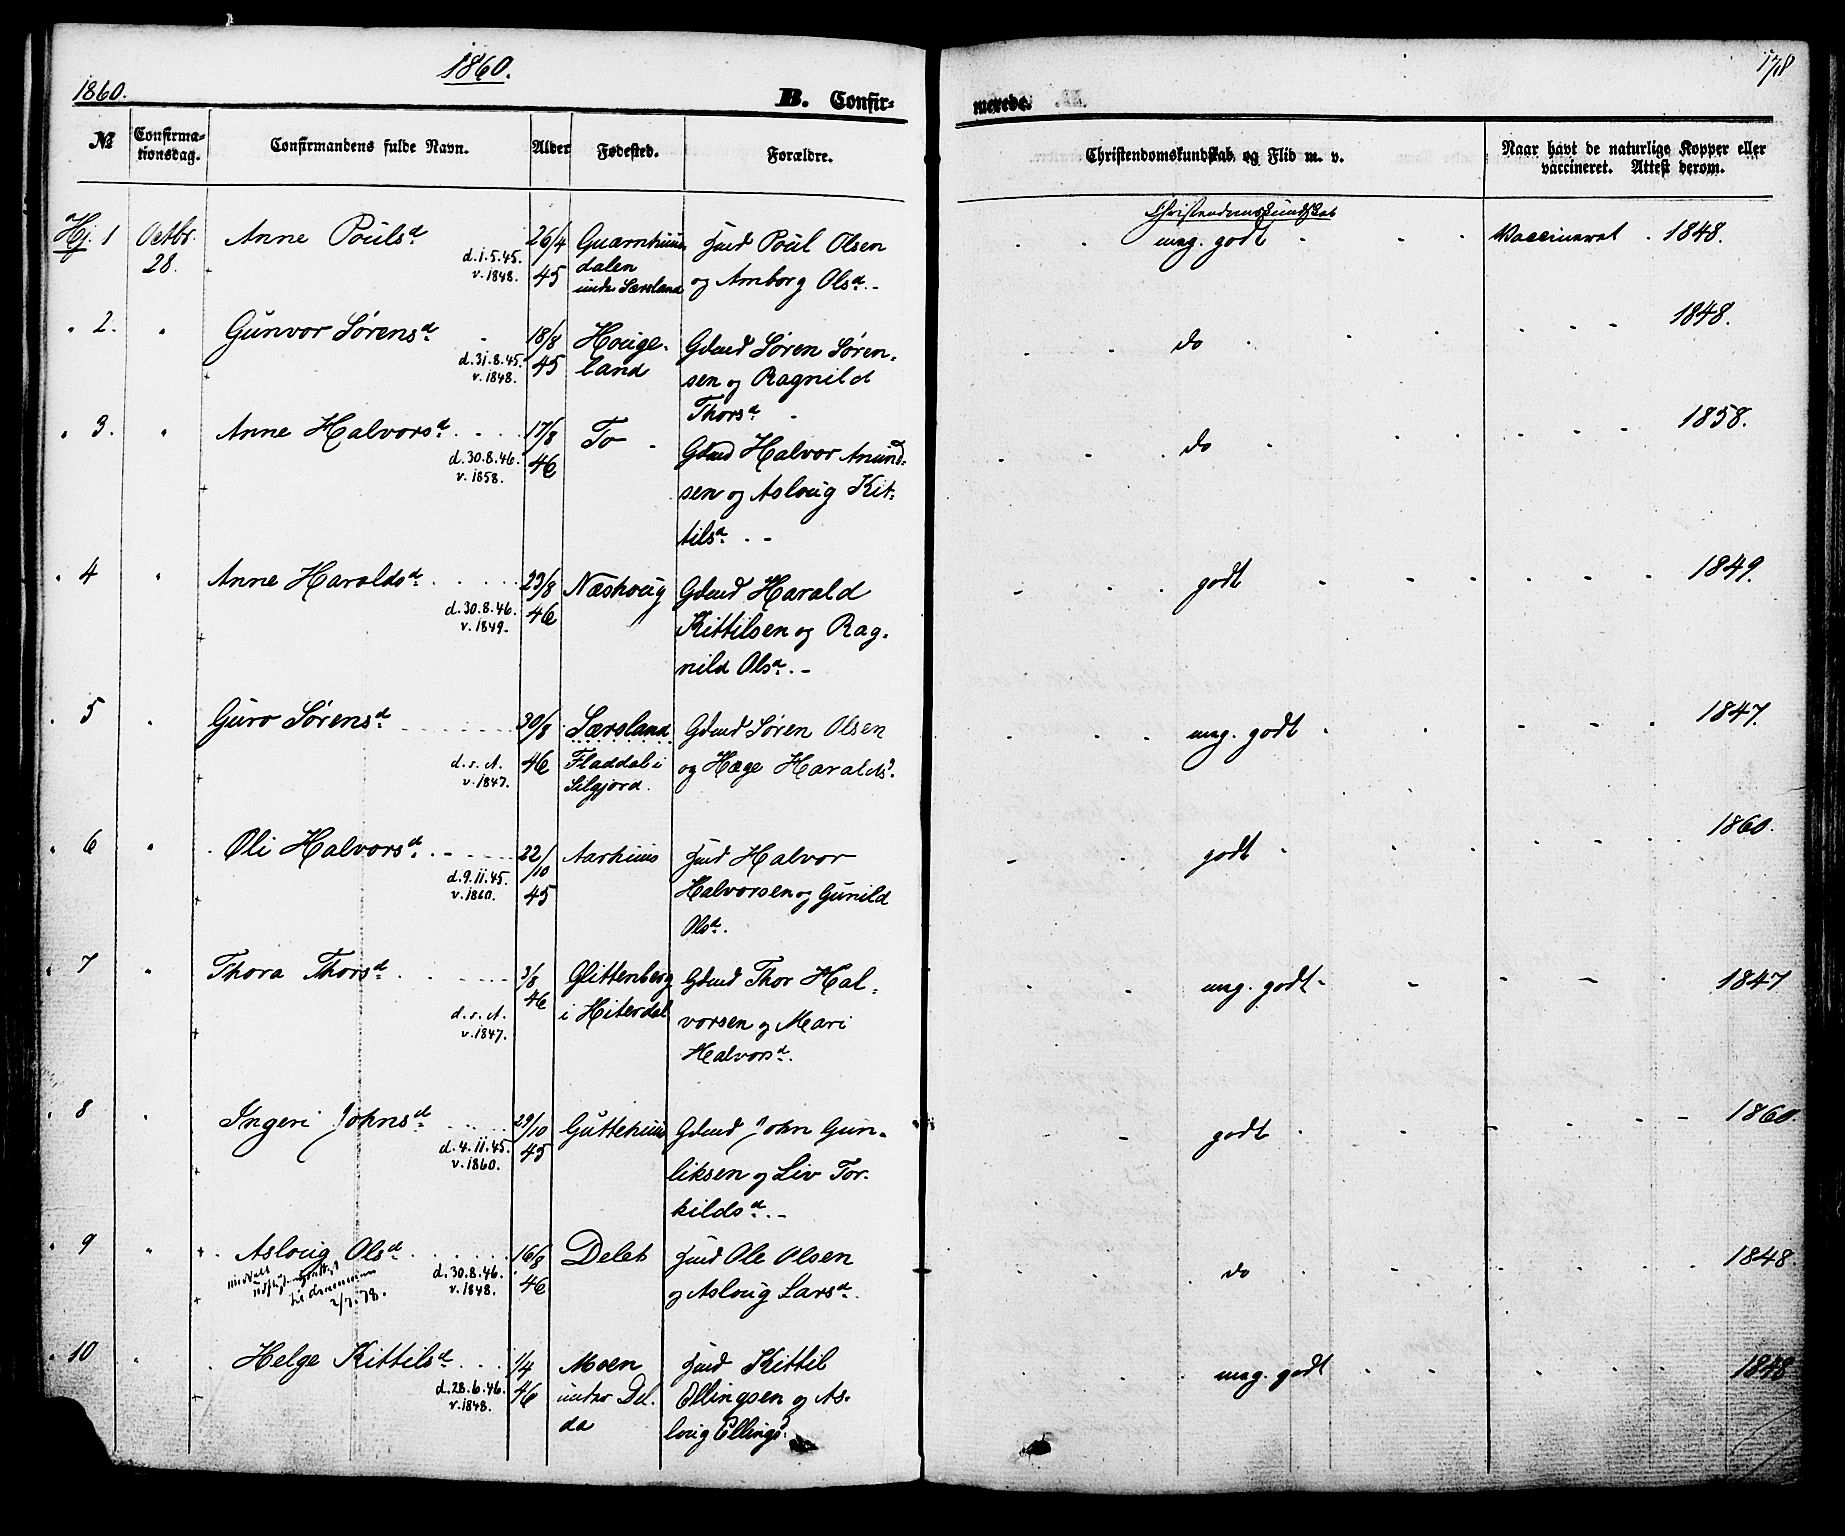 1860.
178
1860.
B. Confir-
merede.
№
Confirma-
tionsdag.
Confirmandens fulde Navn.
Alder
Fødested.
Forældre.
Christendomskundskab og Flid m. v.
Naar havt de naturlige Kopper eller
vaccineret. Attest derom.
Hj. 1
Octbr.
28.
Anne Pouls d.
d.1.5.45.
v.1848.
26/4
45
Guarnhuus
dalen
under Særsland
Poul Olsen
og Amborg Olsd.-
Christendomskundskab
meg. godt
Vaccineret 1848.
" 2.
"
Gunvor Sørensd.
d.31.8.45.
v.1848.
18/8
45
Houge-
land
Gdmd Søren Søren-
sen og Ragnild
Thorsd.
do
1848.
" 3.
"
Anne Halvorsd.
d.30.8.46.
v.1858.
17/8
46
To
Gdmd Halvor Anund-
sen og Asloug Kit-
tilsd. -
do
1858.
" 4
"
Anne Haraldsd.
d.30.8.46.
v.1849.
23/8
46
Næshoug
Gdmd Harald
Kittilsen og Rag-
nild Olsd. -
godt
1849.
" 5
"
Guro Sørensd.
d.s.A.
v.1847.
30/8
46
Særsland
Fladdal i
Silgjord.
Gdmd Søren Olsen
og Hæge Haraldsd.
meg. godt
1847.
" 6
"
Oli Halvorsd.
d.9.11.45.
v.1860.
22/10
45
Aarhuus
Halvor
Halvorsen og Gunild
Olsd.
godt
1860.
" 7
"
Thora Thorsd.
d.s.A.
v.1847.
3/8
46
Glittenberg
i Hiterdal
Gdmd Thor Hal-
vorsen og Mari
Halvorsd.
meg. godt
1847
" 8
"
Ingeri Johnsd.
d.4.11.45.
v.1860.
29/10
45
Guttehuus
Gdmd John Gun-
liksen og Liv Tor-
kildsd. -
godt
1860.
" 9
"
Asloug Olsd.
d.30.8.46.
v.1848.
2/7.78.
16/8
46
Deleb
Ole Olsen
og Asloug Larsd.
do
1848.
" 10
"
Helge Kittilsd.
d.28.6.46.
v.1848.
1/4
46
Moen
under Del-
da
Kittil
Ellingsen og As-
loug Ellingsd.
meg. godt
1848